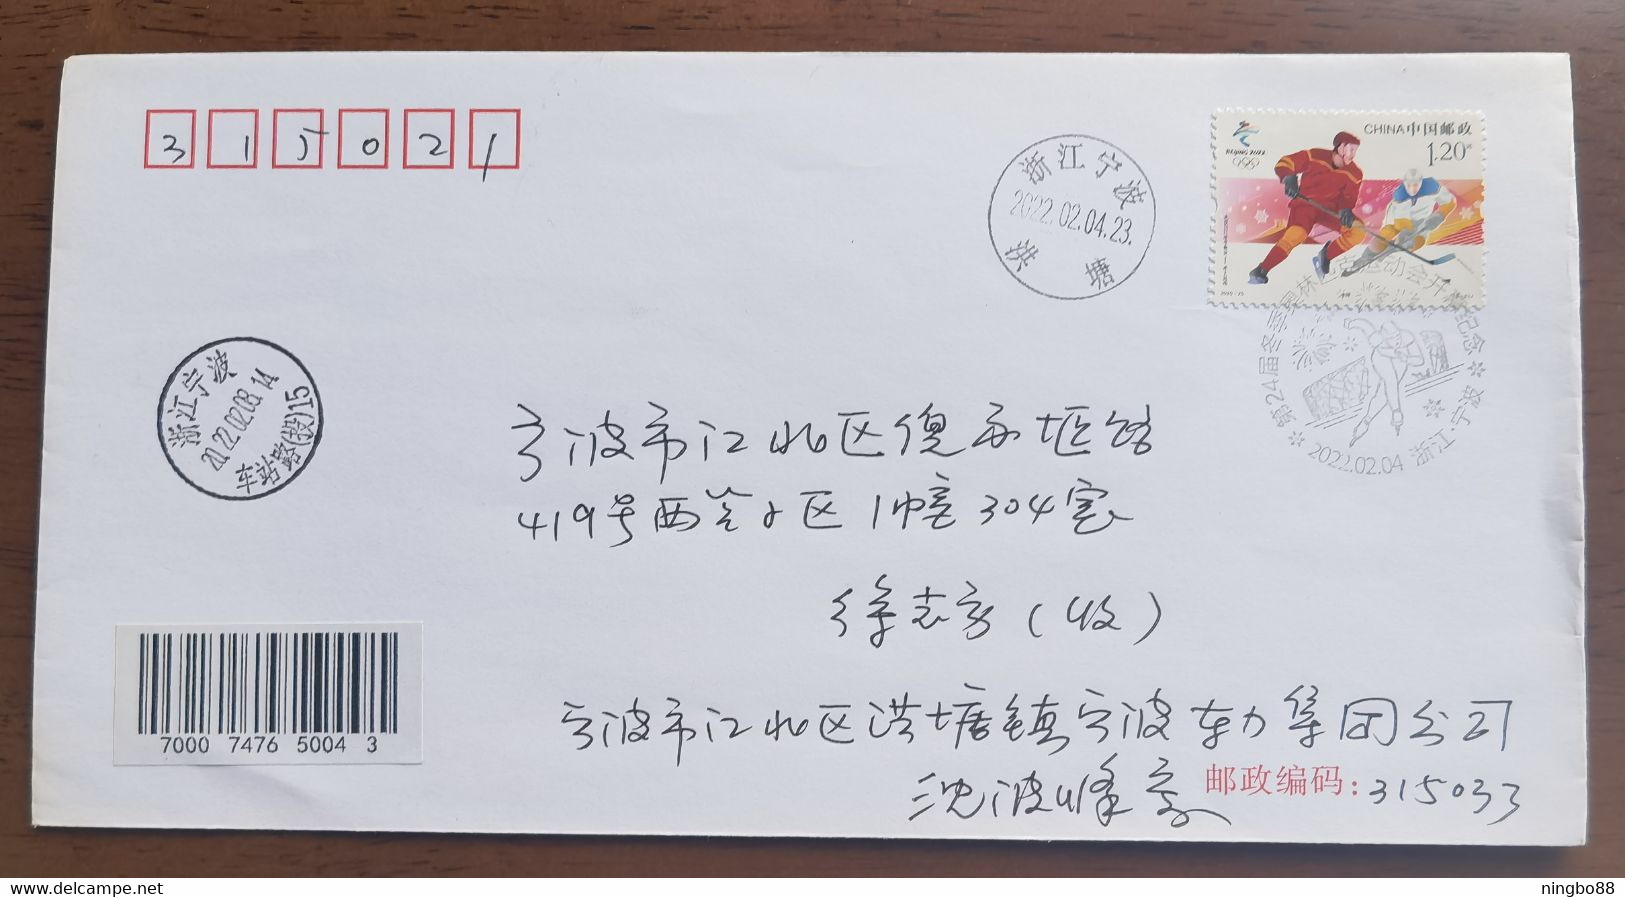 315021
浙江宁波
2022.02.04.23.
洪塘
BEIJING 2022
CHINA中国邮政
1.20元
第24届冬季奥林匹克运动会开幕纪念
2022.02.04 浙江·宁波
浙江宁波
2022.02.08.14
车站路(投)15
宁波市江北区
419号西 小区1幢304室
徐志 (收)
宁波市江北区洪塘镇宁波东力集团公司
沈波峰寄
邮政编码:315033
7000 7476 5004 3
www.delcampe.net
ningbo88